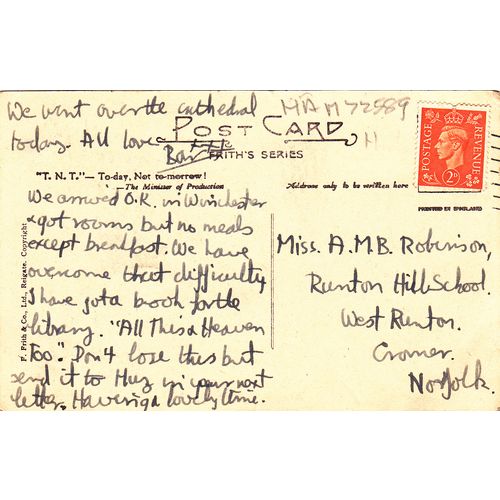 We went over the cathedral
today. All love
HAM72589
POST CARD
H
FRITH'S SERIES
"T.N.T."—To-day, Not to-morrow!
—The Minister of Production
Address only to be written here
POSTAGE REVENUE
2D
PRINTED IN ENGLAND
We arrived O.K. in Winchester
& got rooms but no meals
except breakfast. We have
overcome that difficulty
I have got a book for the
library. "All This & Heaven
Too". Don't lose this but
send it to in your next
letter. Having a lovely time.
F. Frith & Co., Ltd., Reigate. Copyright
Miss. A.M.B. Robinson,
Runton Hill School.
West Runton.
Cromer.
Norfolk.